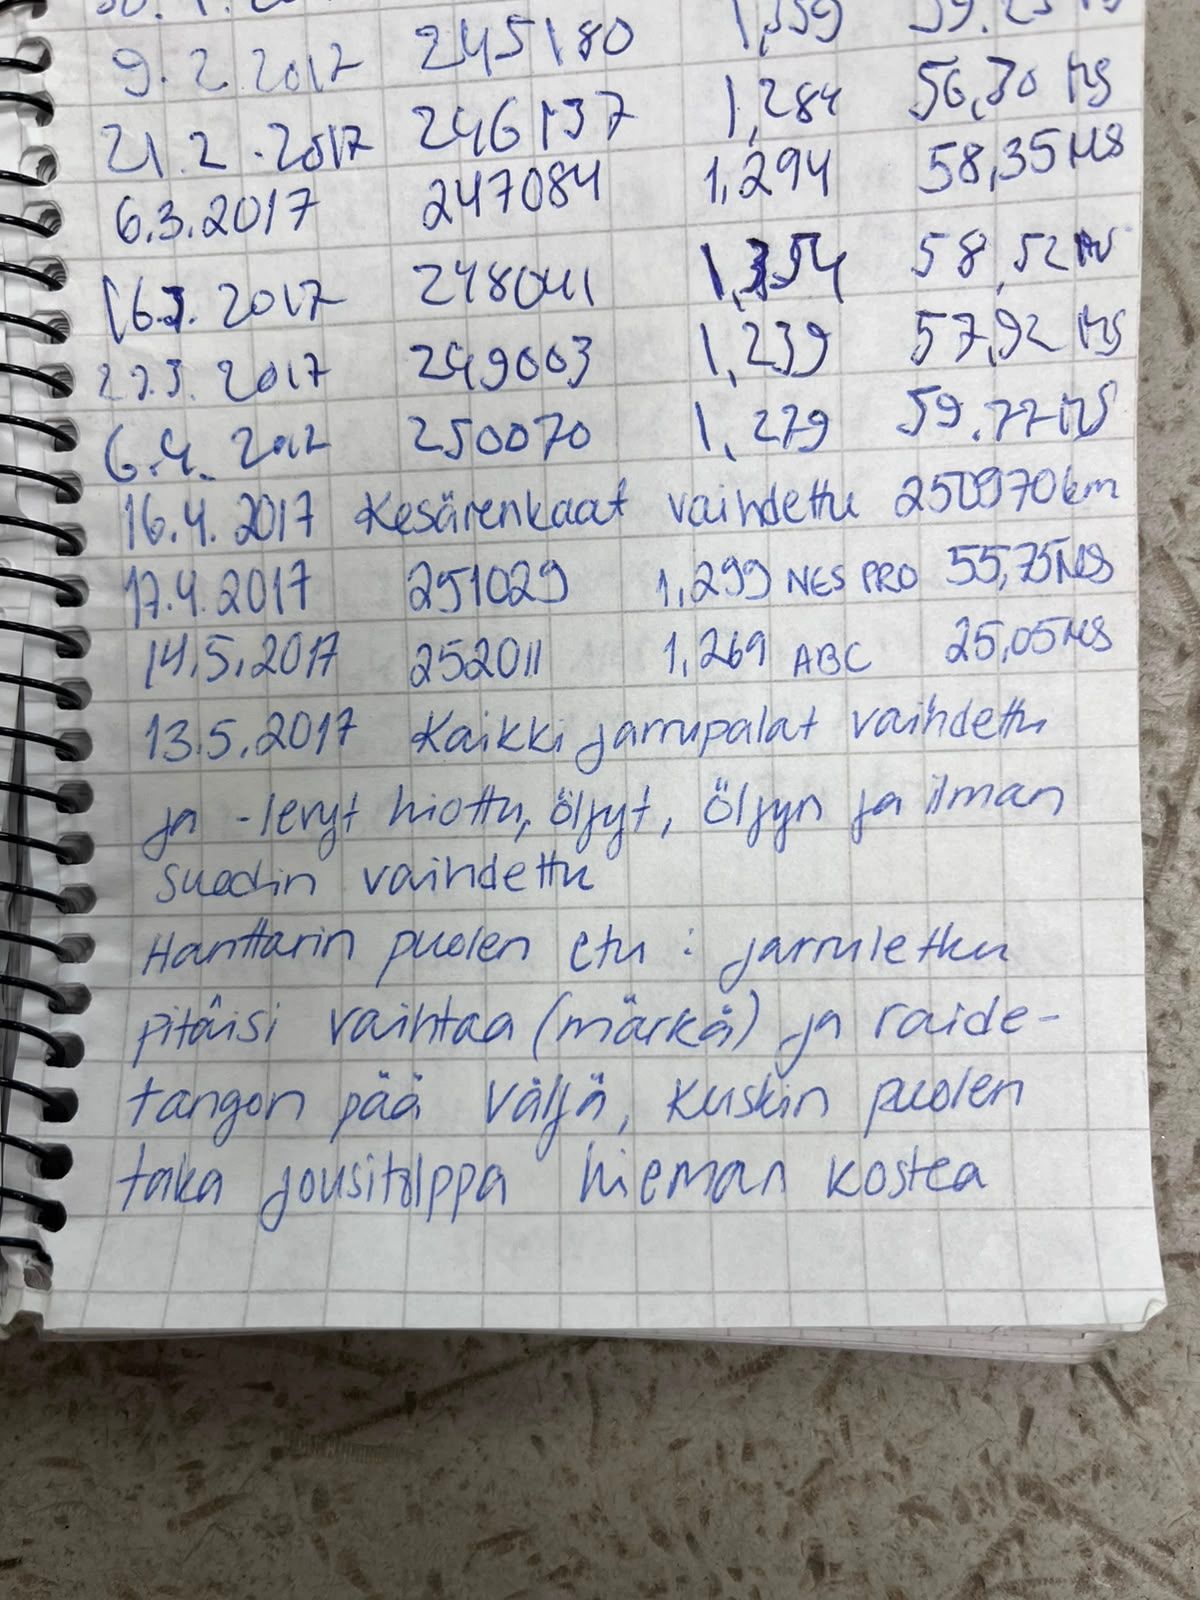 9.2.2017 245180 1,359
21.2.2017 246137 1,284 56,70 MS
6.3.2017 247084 1,294 58,35 MS
16.3.2017 248041 1,354 58,52 MS
249003 1,239 57,92 MS
6.4.2017 250070 1,279 59.77 MS
16.4.2017 Kesärenkaat vaihdettu 250970km
17.4.2017 251029 1,299 NES PRO 55,75 MS
14.5.2017 252011 1,269 ABC 25,05 MS
13.5.2017 Kaikki jarrupalat vaihdettu
ja -levyt hiottu, öljyt, öljyn ja ilman
suodin vaihdettu
Hanttarin puolen etu: jarruletku
pitäisi vaihtaa (märkä) ja raide-
tangon pää väljä, Kuskin puolen
taka jousitolppa hieman kostea